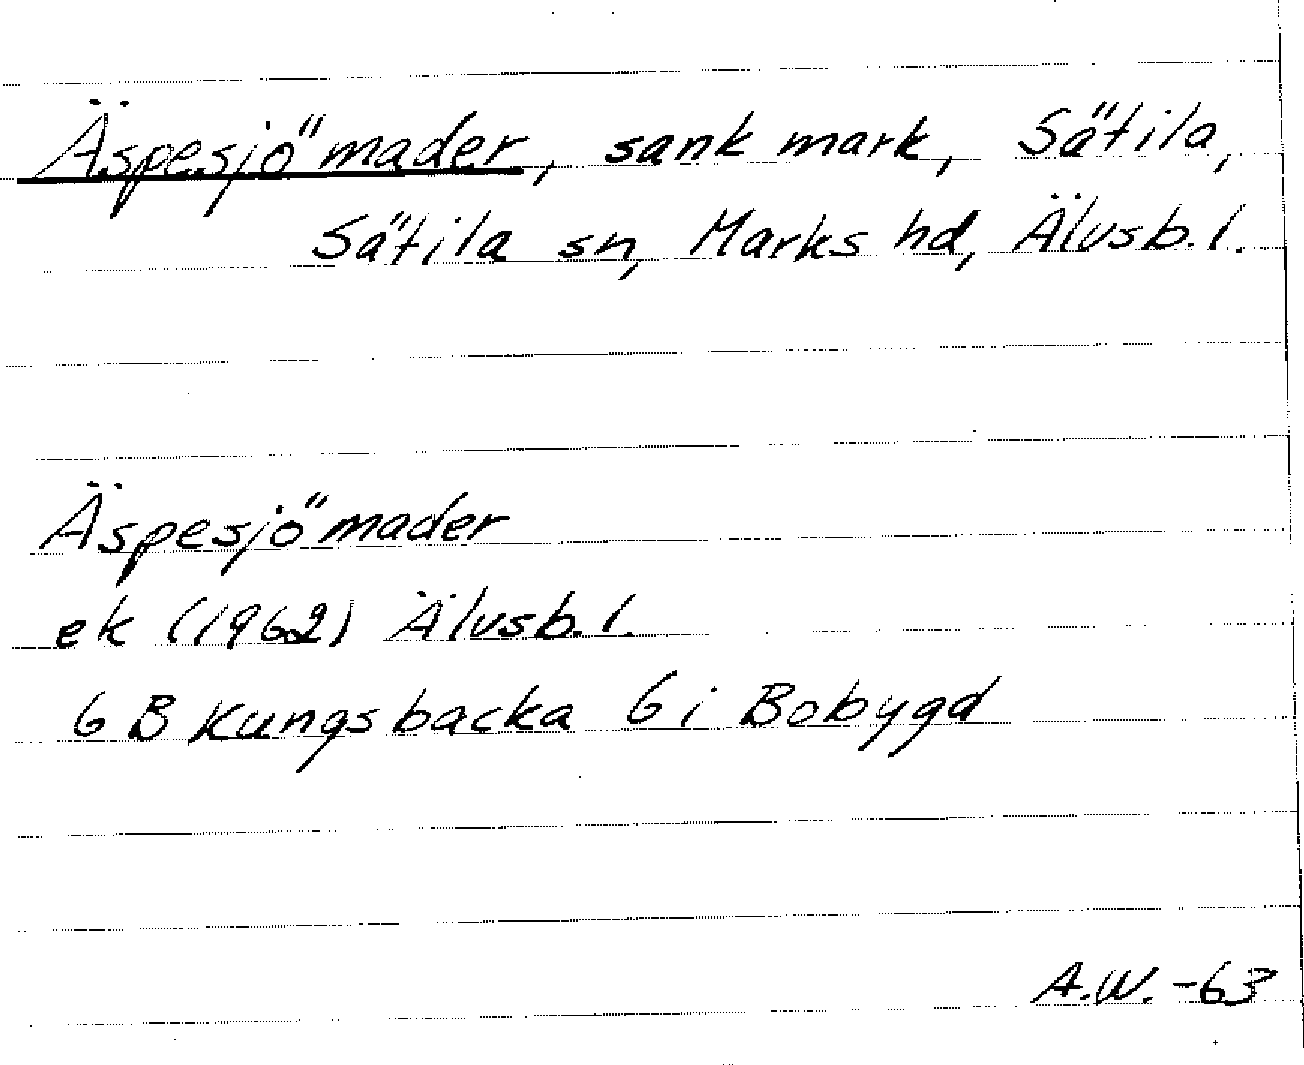 Äspesjömader, sank mark, Sätila,
Sätila sn, Marks hd, Älvsb. l.
Äspesjömader
ek (1962) Älvsb. l.
6 B Kungsbacka 6 i Bobygd
A.W. -63